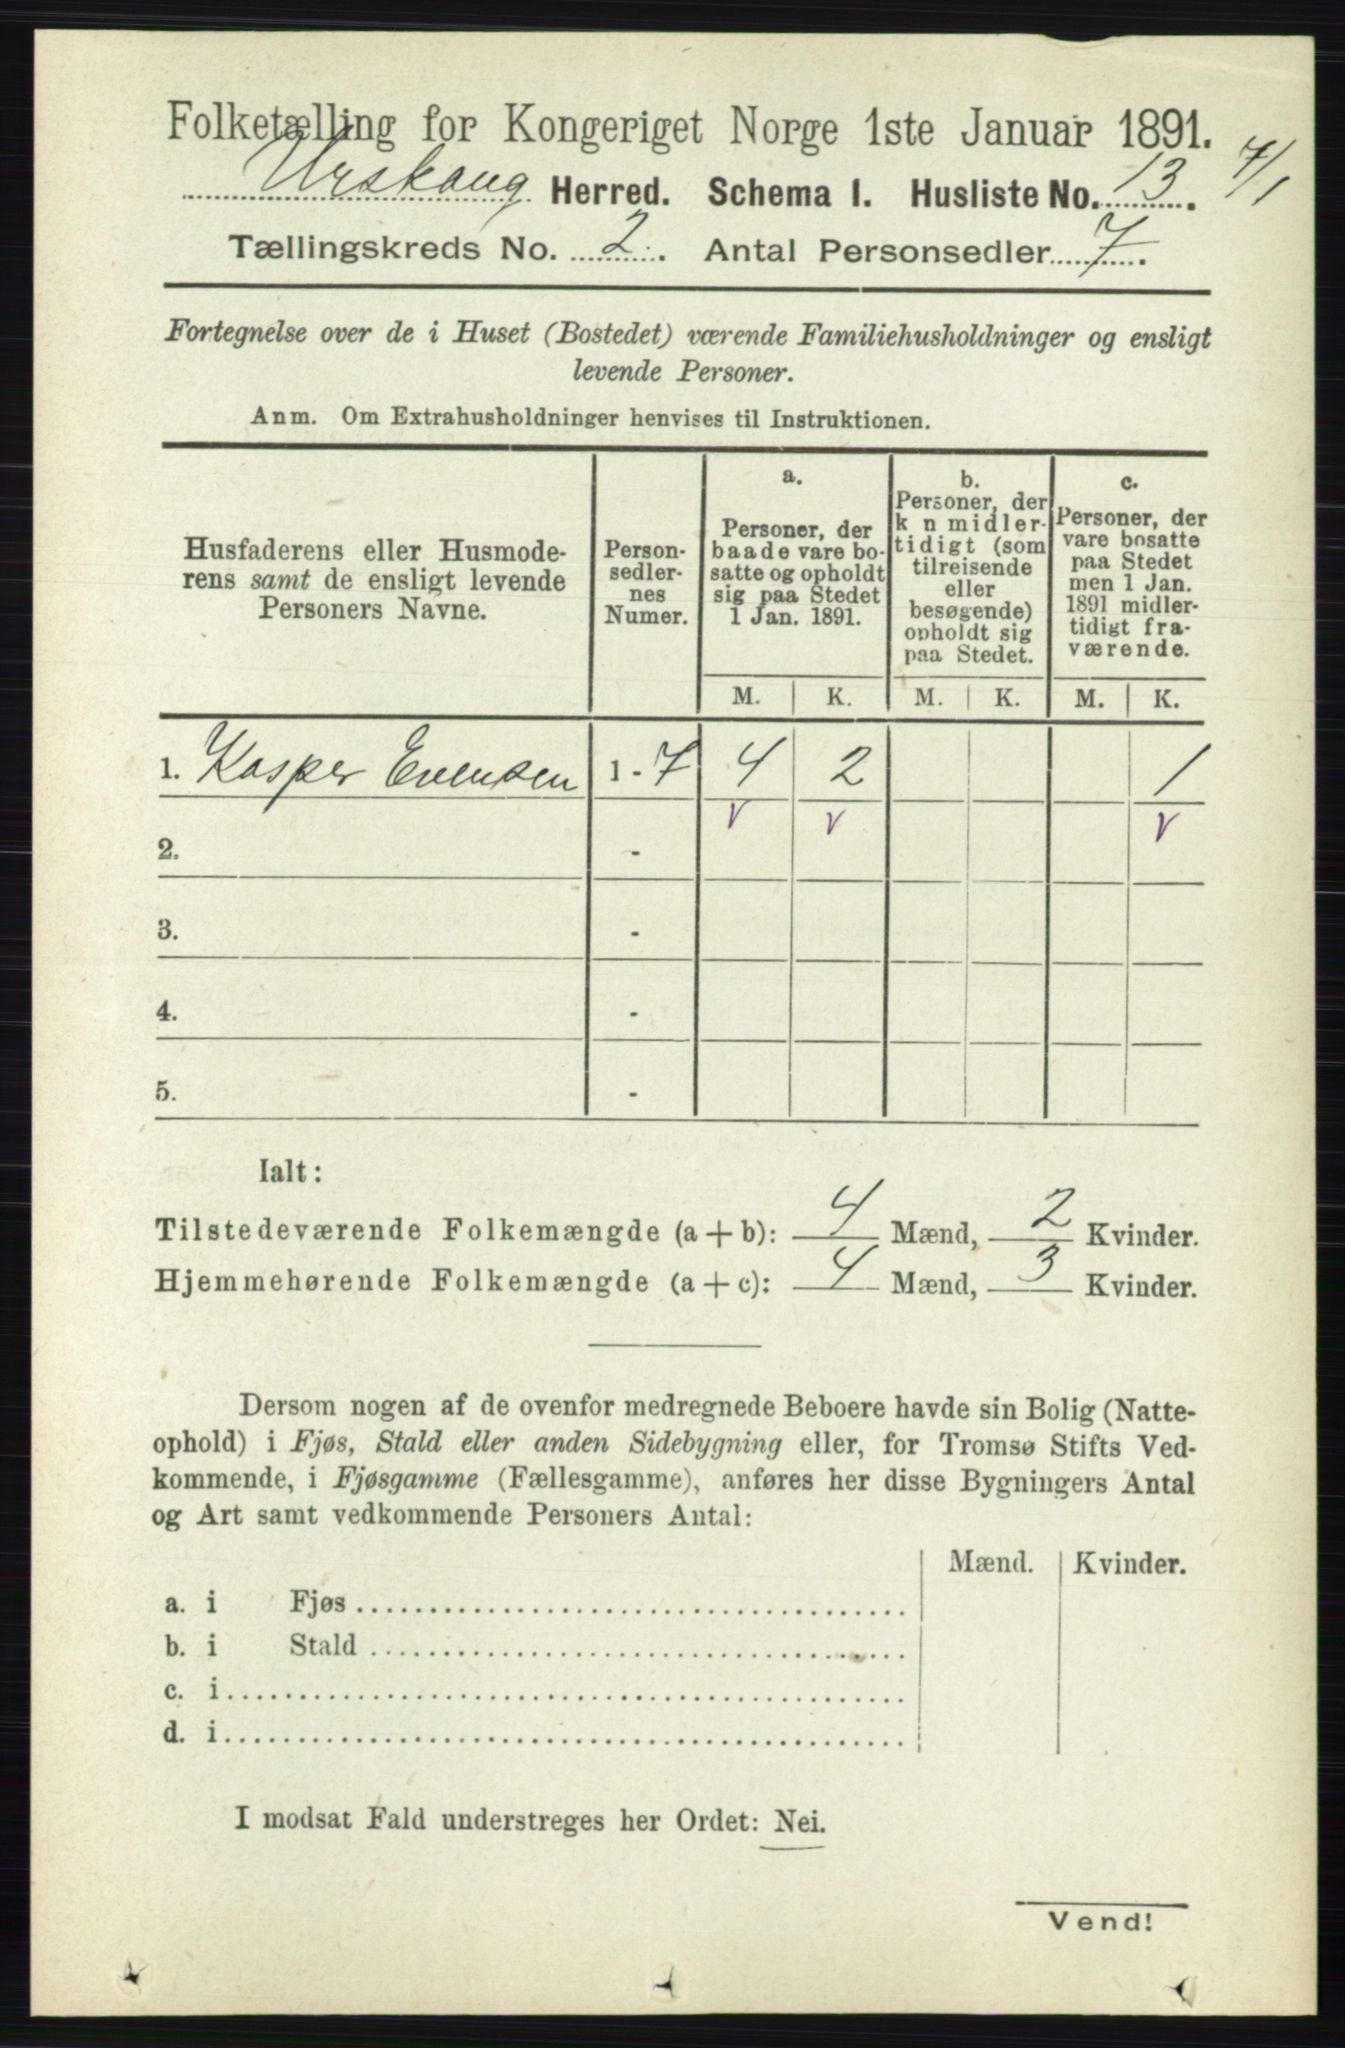 Folketælling for Kongeriget Norge 1ste Januar 1891.
Urskoug Herred. Schema I. Husliste No. 13. 7/1
Tællingskreds No. 2. Antal Personsedler 7.
Fortegnelse over de i Huset (Bostedet) værende Familiehusholdninger og ensligt
levende Personer.
Anm. Om Extrahusholdninger henvises til Instruktionen.
Husfaderens eller Husmode-
rens samt de ensligt levende
Personers Navne.
Person-
sedler-
nes
Numer.
a.
Personer, der
baade vare bo-
satte og opholdt
sig paa Stedet
1 Jan. 1891.
b.
Personer, der
k n midler-
tidigt (som
tilreisende
eller
besøgende)
opholdt sig
paa Stedet.
c.
Personer, der
vare bosatte
paa Stedet
men 1 Jan.
1891 midler-
tidigt fra-
værende.
M. K. M. K. M. K.
1. Kasper Evensen 1 - 7 4 2 1
v v v
2. -
3. -
4. -
5. -
Ialt:
Tilstedeværende Folkemængde (a + b): 4 Mænd, 2 Kvinder.
Hjemmehørende Folkemængde (a + c): 4 Mænd, 3 Kvinder.
Dersom nogen af de ovenfor medregnede Beboere havde sin Bolig (Natte-
ophold) i Fjøs, Stald eller anden Sidebygning eller, for Tromsø Stifts Ved-
kommende, i Fjøsgamme (Fællesgamme), anføres her disse Bygningers Antal
og Art samt vedkommende Personers Antal:
Mænd. Kvinder.
a. i Fjøs
b. i Stald
c. i
d. i
I modsat Fald understreges her Ordet: Nei.
Vend!